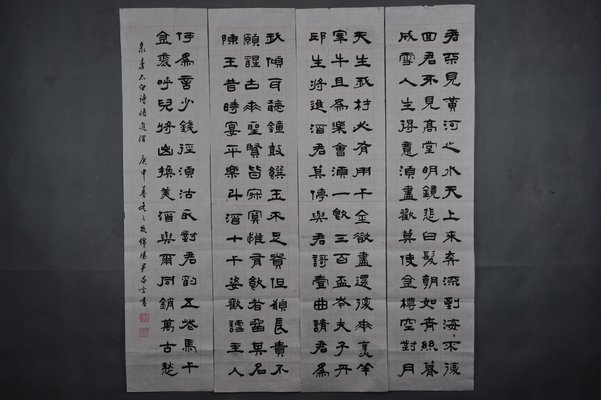 君不見黃河之水天上來奔流到海不復
回君不見高堂明鏡悲白髮朝如青絲暮
成雪人生得意須盡歡莫使金樽空對月
天生我材必有用千金散盡還復來烹羊
宰牛且為樂會須一飲三百盃岑夫子丹
邱生將進酒君莫停與君謌壹曲請君為
我傾耳聽鐘鼓饌玉不足貴但願長醉不
願醒古來聖賢皆寂寞惟有飲者留其名
陳王昔時宴平樂斗酒十千恣歡謔主人
何為言少錢徑須沽取對君酌五花馬千
金裘呼兒將出換美酒與爾同銷萬古愁
李太白詩將進酒 庚申暮冬之 綿陽 書